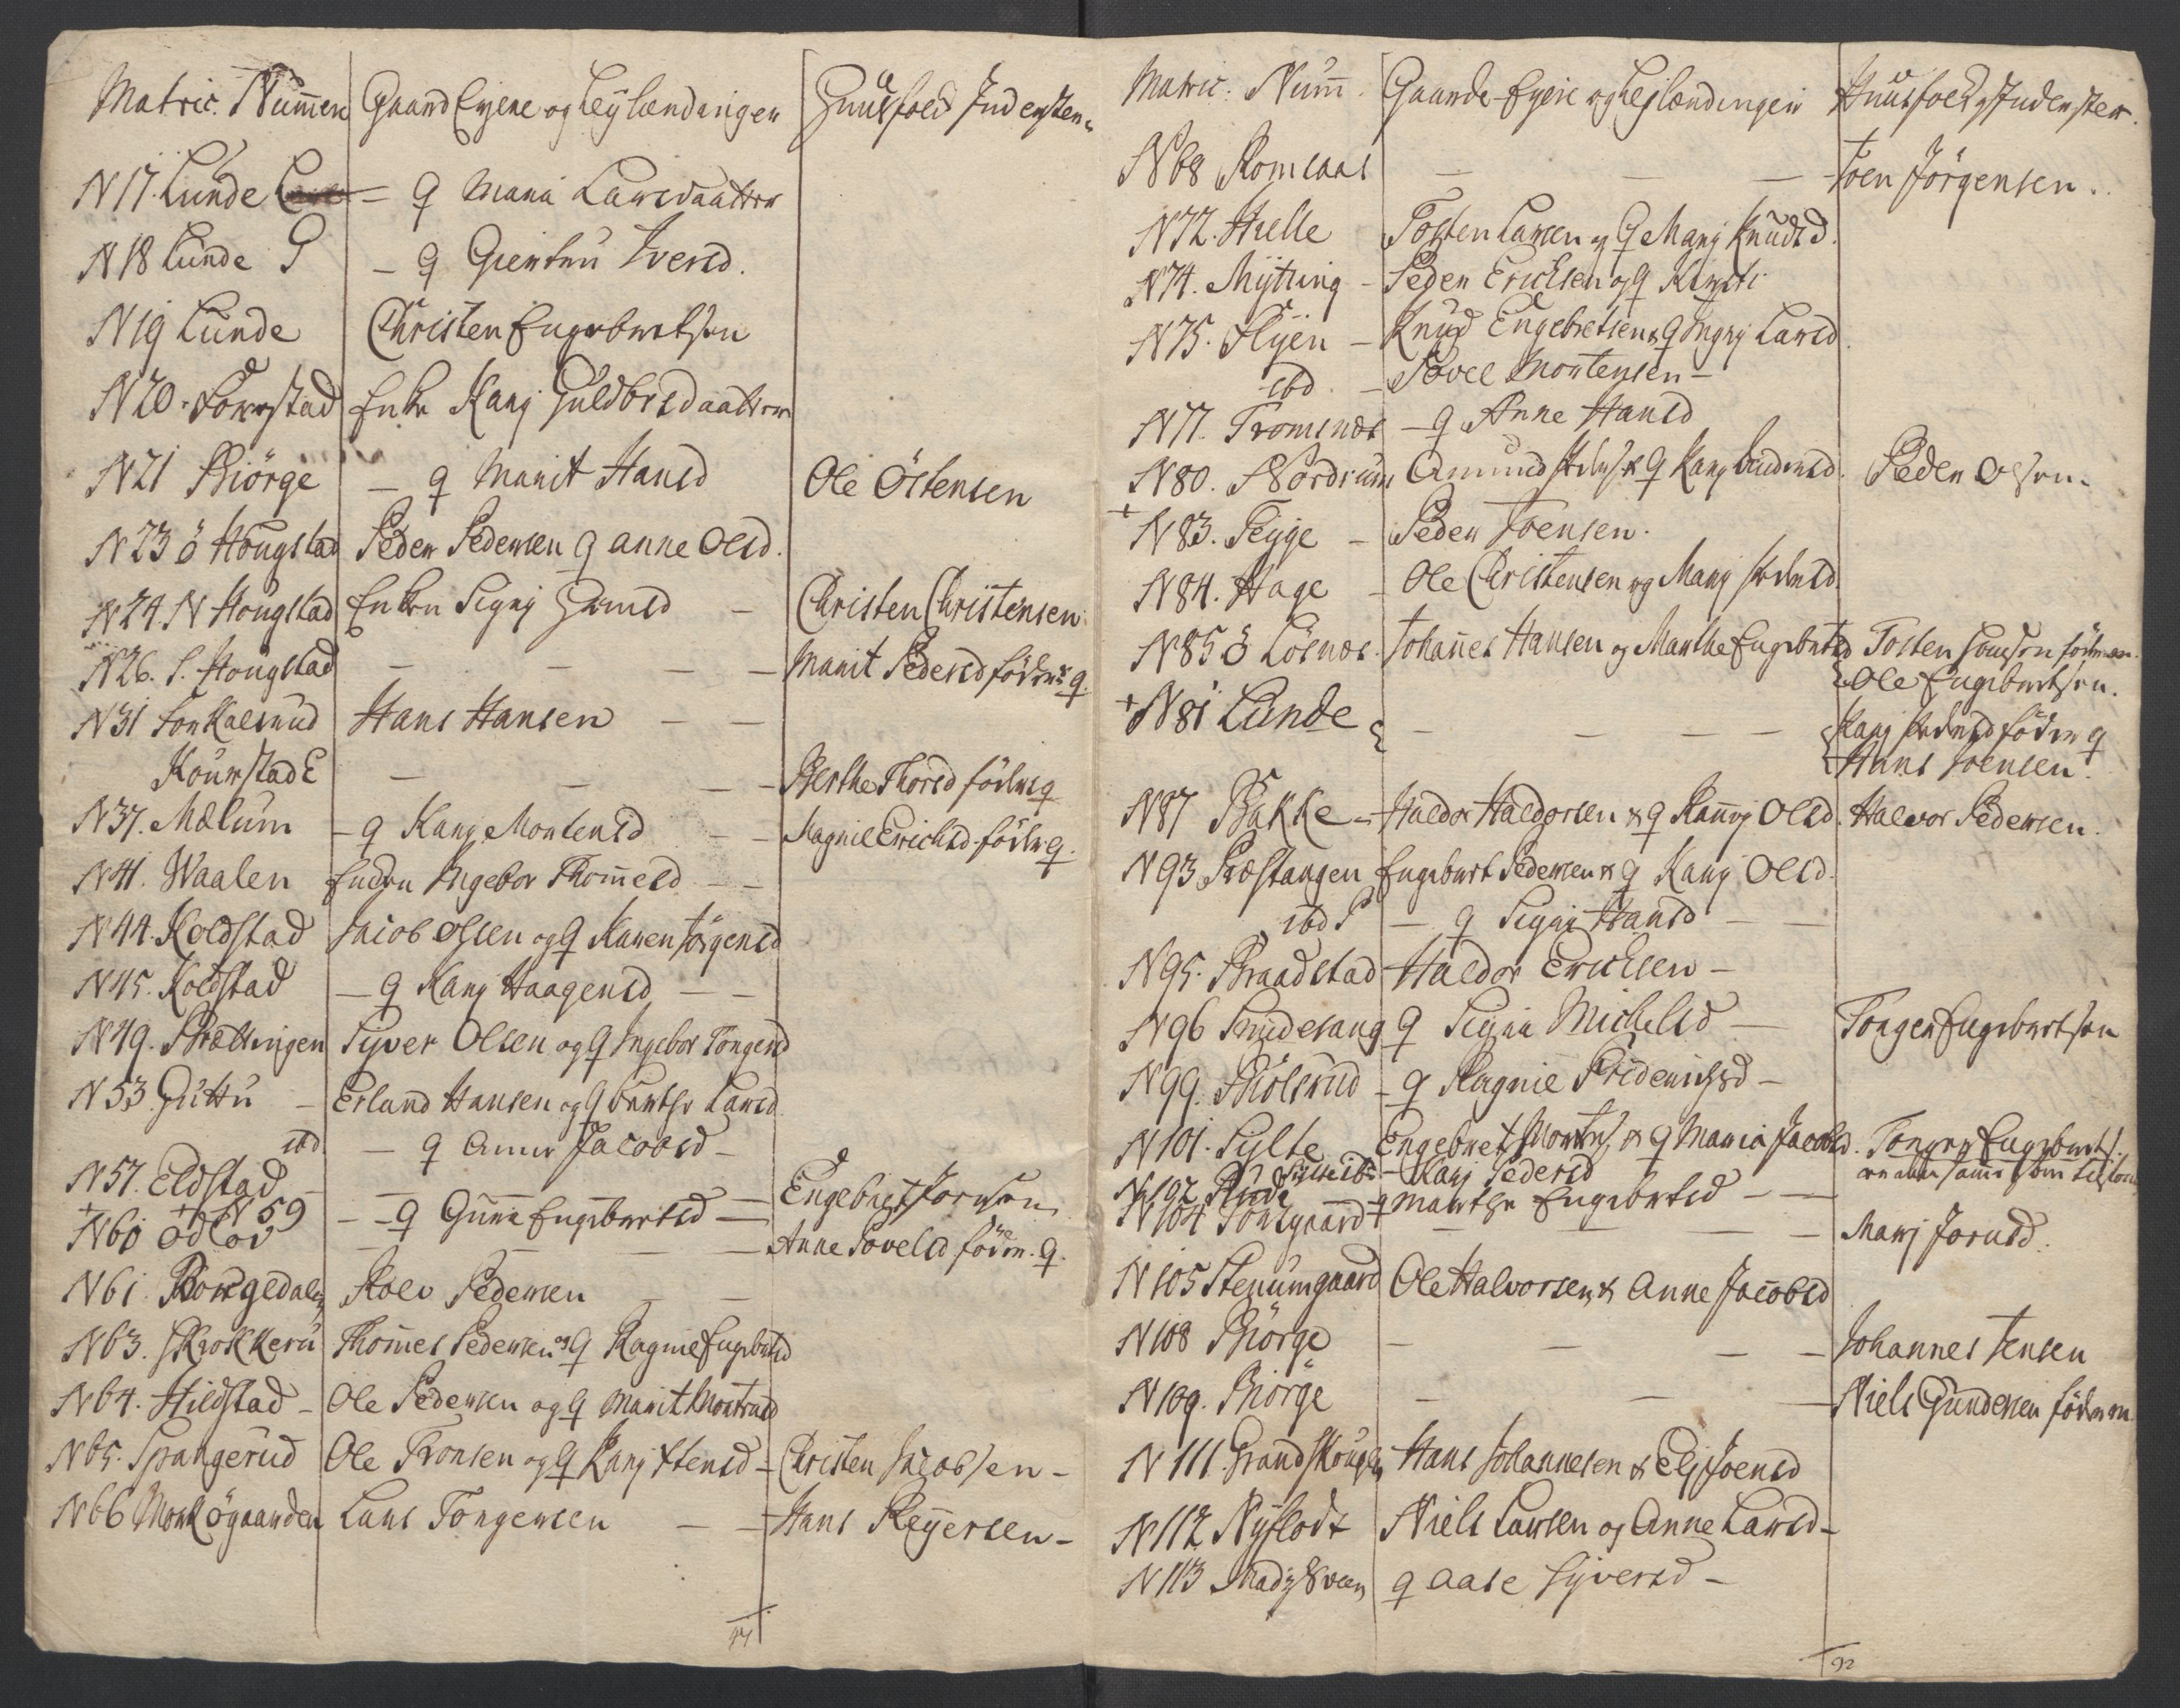 Matric. Nummer Gaard Eyere og Leylændinger Huusfolk Inderster
N17. Lunde — q Maria Larsdaatter
N18 Lunde — q Giertru Iversd.
N19 Lunde Christen Engebretsen
N20. Forrstad Enke Kary Guldbrdsdaatter
N21 Biörge — q Marit Hansd Ole Östensen
N23 ö Hougstad Peder Pedersen q anne Olsd.
N24. N Hougstad Enken Signj — Christen Christensen
N26. S. Hougstad — — — — Marit Pedersd föder q.
N31 Hans Hansen — —
Kourstad E — — — — Berthe Thorsd föder q
N37. Mælum — q Kary Mortensd — — Ragnil Erichsd föder q.
N41. Waalen Ingebor Thommesd — —
N44. Koldstad Jacob Olsen og q Karen Jörgensd
N45. Koldstad — q Kary Haagensd — —
N49. Brættingen Syver Olsen og q Ingebor Torgersd
N53. Guttu — Erland Hansen og q Berthe Larsd
ibd — q Anne Jacobsd —
N57. Eldstad — — — — Engebret
+ N60 + N59 Odlov — — q Gunni Engebretsd — Anne Povelsd föder q.
N61. Borgedalen Roln Pedersen — —
N63. Skrokkeru Thommes Pedersen og q Ragnil Engebretsd
N64. Hildstad — Ole Pedersen og q Marit Mortensd
N65. Spangerud Ole Tronsen og q Kary Stensd — Christen Jacobsen —
N66 Morkögaarden Lars Torgersen — — Hans Reyersen —
Matric: Numm. Gaarde Eyere og Leylændinger Huusfolk og Inderster.
N68 Romsaas — — — Joen Jörgensen.
N72. Hielle Tosten Larsen og q Mary Knudsd.
N74. Mytting — Peder Erichsen og q Kirsti
N75. Flyen — Knud Engebretsen & q Ingrj Larsd.
ibd — Povel Mortensen —
N77. Tromsnæs — q Anne Hansd
N80. Nordrum Amund & q Kary Peder Olsen.
+ N83. Teyge — Peder Joensen.
N84. Hage — Ole Christensen og Mary Pedersd.
N85 ö Lösnæs. Johannes Hansen og Marthe Engebretsd Tosten föderm.
Ole Engebretsen.
+ N81 Lunde — — — — Kary Pedersd föder q
Hans Joensen.
N87 Bakke — Haldor Haldorsen & q Rannvj Olsd. Halvor Pedersen.
N93 Præstangen Engebret Pedersen & q Kary Olsd.
ibd — q Signj Hansd — —
N95. Braadstad Haldor Erichsen —
N96 Smidesang q Signi Michelsd — Torger Engebretsen
N99. Biölsrud — q Ragnil Friderichsd —
N101. Sylte Engebret Mortens. & q Maria Jacobsd. Torger Engebrets.
ibd — Kary Pedersd
N102 Rud — q Marthe Engebretsd — —
N104 Forsgaard — — — Mary Jornsd.
N105 Stenumgaard Ole Halvorsen & Anne Jacobsd
N108 Biörge — — — — Johannes Jensen
N109. Biörge — — — Niels Gundersen föderm.
N111. Grandskougen Hans Johannesen & Elj Joensd
N112 Nyflodt Niels Larsen og Anne Larsd —
N113 q Aase Syversd —
92